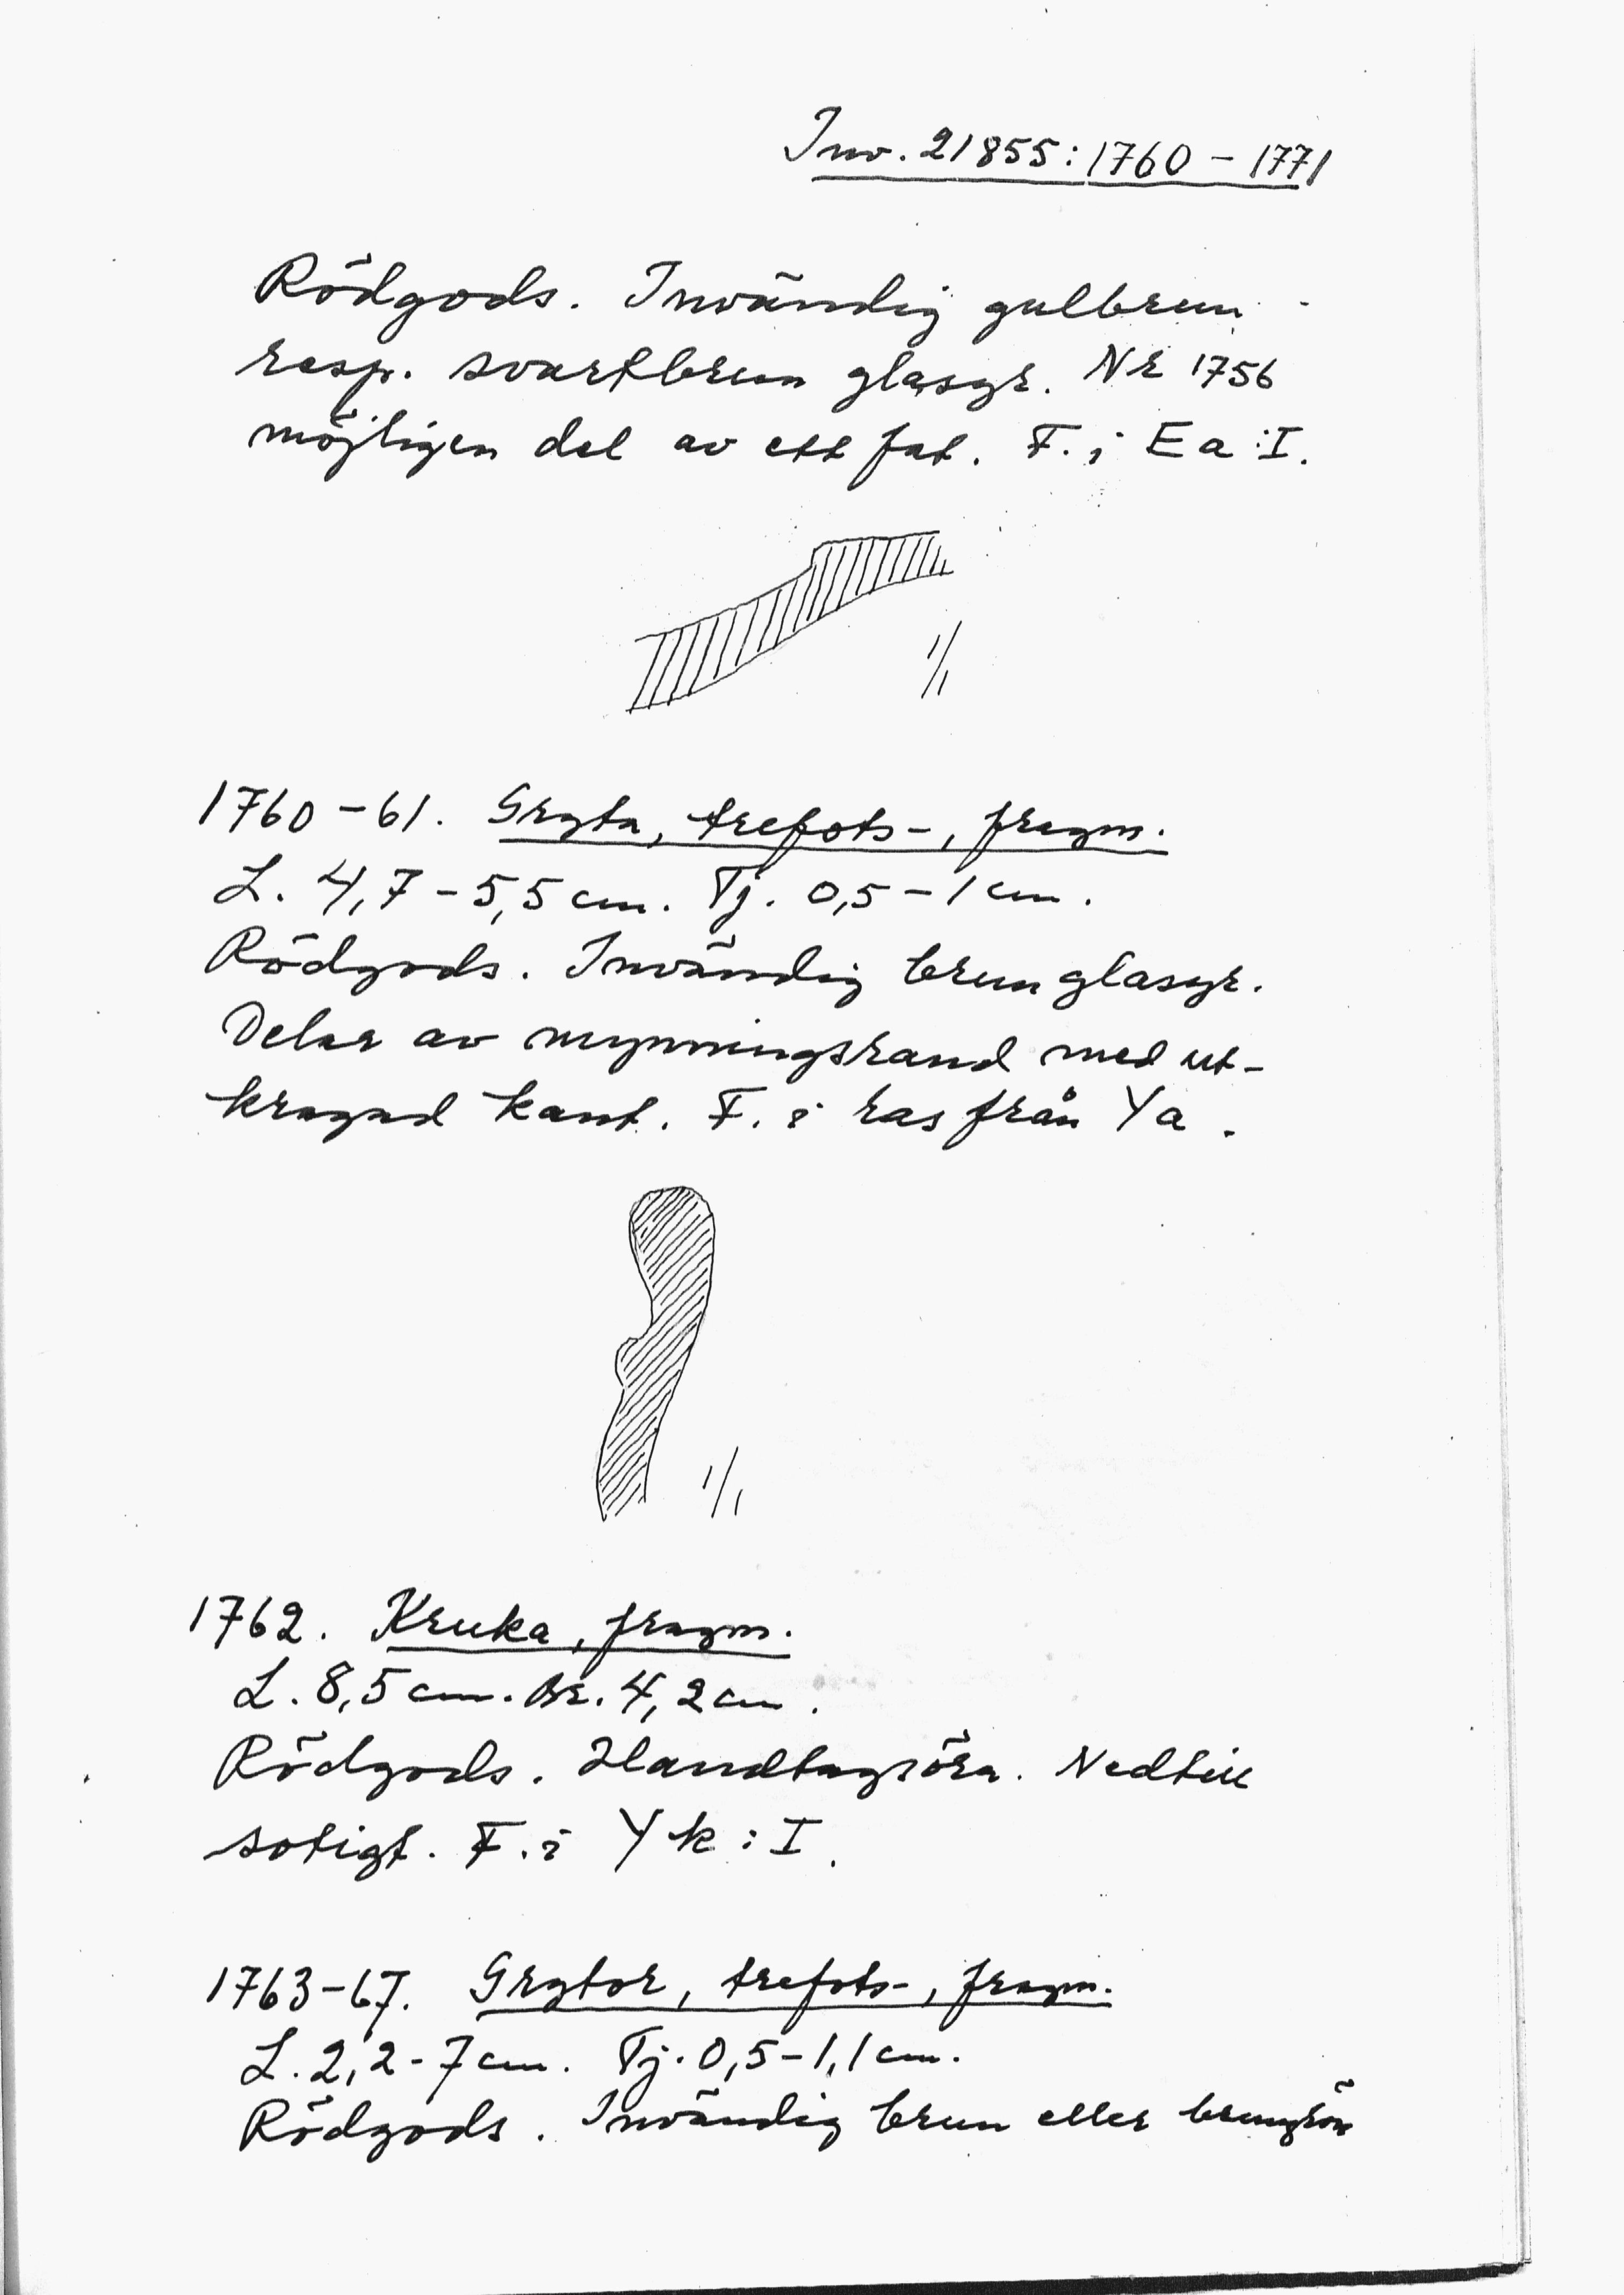 Inv. 21855:1760 – 1771
Rödgods. Invändig gulbrun -
resp. svartbrun glasyr. Nr 1756
möjligen del av ett fat. F. i Ea:I.
1/1
1760–61. Gryta, trefots-, fragm.
L. 4,7 – 5,5 cm. Tj. 0,5 – 1 cm.
Rödgods. Invändig brun glasyr.
Delar av mynningsrand med ut-
kragad kant. F. i ras från Ya.
1/1
1762. Kruka, fragm.
L. 8,5 cm. Br. 4,2 cm.
Rödgods. Handtagsöra. Nedtill
sotigt. F. i Yk:I.
1763–67. Grytor, trefots-, fragm.
L. 2,2 - 7 cm. Tj. 0,5 – 1,1 cm.
Rödgods. Invändig brun eller brungrön